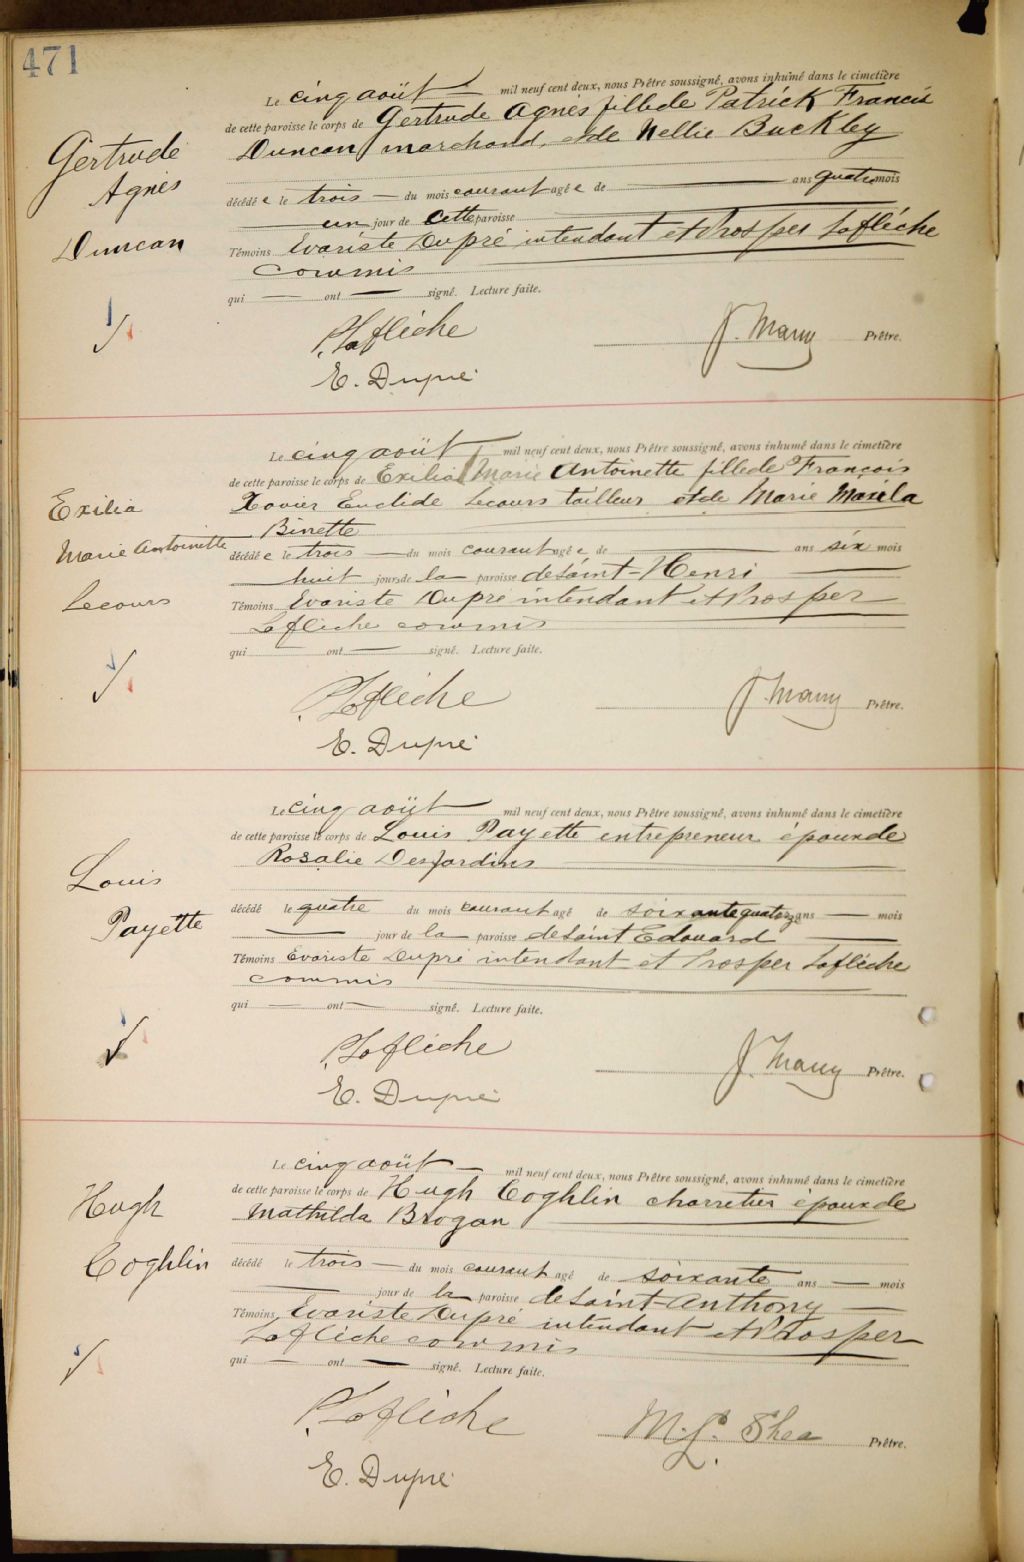 471
Le cinq août mil neuf cent deux, nous Prêtre soussigné, avons inhumé dans le cimetière
de cette paroisse le corps de Gertrude Agnès fille de Patrick Francis
Duncan marchand, et de Nellie Buckley
Gertrude
Agnès
Duncan
décédée le trois du mois courant agée de ans quatre mois
un jour de cette paroisse
Témoins Evariste Dupré intendant et Prosper Laflèche
commis
qui ont signé. Lecture faite.
P. Laflèche
J. Many Prêtre.
E. Dupré
Le cinq août mil neuf cent deux, nous Prêtre soussigné, avons inhumé dans le cimetière
de cette paroisse le corps de Exilia Marie Antoinette fille de François
Xavier Euclide Lecours tailleur et de Marie Maxila
Binette
Exilia
Marie Antoinette
Lecours
décédée le trois du mois courant agée de ans six mois
huit jours de la paroisse de Saint-Henri
Témoins Evariste Dupré intendant et Prosper
Laflèche commis
qui ont signé. Lecture faite.
P. Laflèche
J. Many Prêtre.
E. Dupré
Le cinq août mil neuf cent deux, nous Prêtre soussigné, avons inhumé dans le cimetière
de cette paroisse le corps de Louis Payette entrepreneur époux de
Rosalie Desjardins
Louis
Payette
décédé le quatre du mois courant agé de soixante quatorze ans mois
jour de la paroisse de Saint Edouard
Témoins Evariste Dupré intendant et Prosper Laflèche
commis
qui ont signé. Lecture faite.
P. Laflèche
J. Many Prêtre.
E. Dupré
Le cinq août mil neuf cent deux, nous Prêtre soussigné, avons inhumé dans le cimetière
de cette paroisse le corps de Hugh Coghlin charretier époux de
Mathilda Brogan
Hugh
Coghlin
décédé le trois du mois courant agé de soixante ans mois
jour de la paroisse de Saint-Anthony
Témoins Evariste Dupré intendant et Prosper
Laflèche commis
qui ont signé. Lecture faite.
P. Laflèche
M. L. Shea Prêtre.
E. Dupré